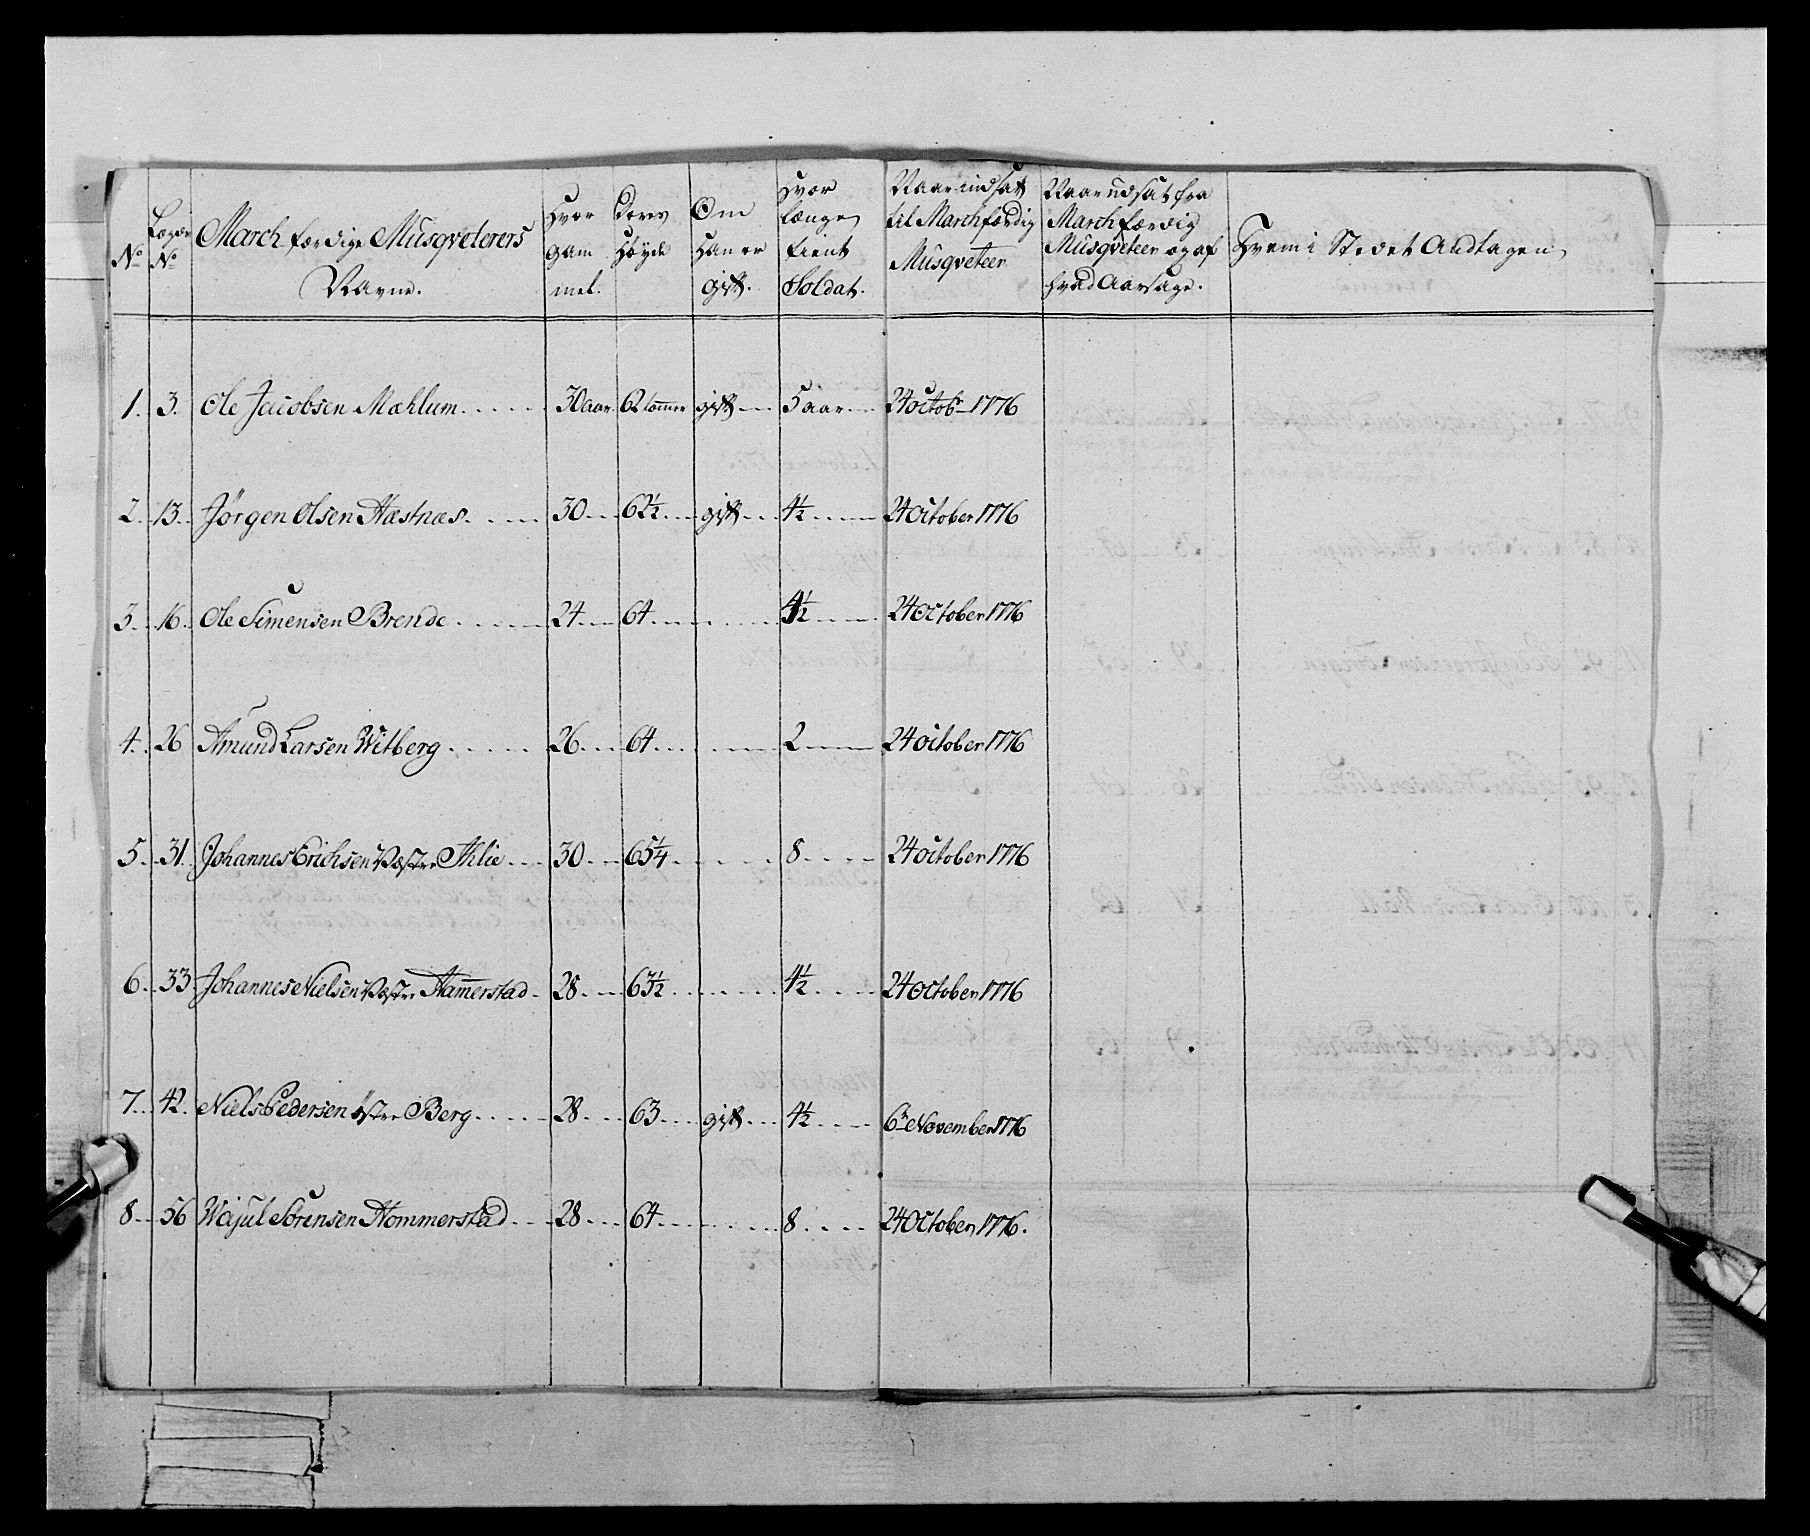 No
Lægds No
March færdige Musqveterers Navne.
Hvor gam mel.
Deres Höyde
Om Han er gift.
Hvor længe tient Soldat.
Naar indsat til Marchfærdig Musqveteer
Naar udsat fra Marchfærdig Musqveteer og af hvad Aarsage.
Hvem i Stedet Andtagen
1. 3. Ole Jacobsen Mæhlum 30 aar 62 tommer gift 5 aar 24 octobr 1776
2. 13. Jörgen Olsen Næstnæs. 30 62½ gift 4½ 24 October 1776
3. 16. Ole Simensen Brende 24 64 4½ 24 October 1776
4. 26 Amund Larsen Witberg 26 64 2 24 October 1776
5. 31. Johannes Erichsen Væstre Ihlie 30 65¼ 8 24 October 1776
6. 33 Johannes Nielsen Væstre Hammerstad 28 63½ 4½ 24 October 1776
7. 42. Niels Pedersen östre Berg 28 63 gift 4½ 6te November 1776
8. 56 Wejul Sörensen Hommerstad 28 64 8 24 October 1776.